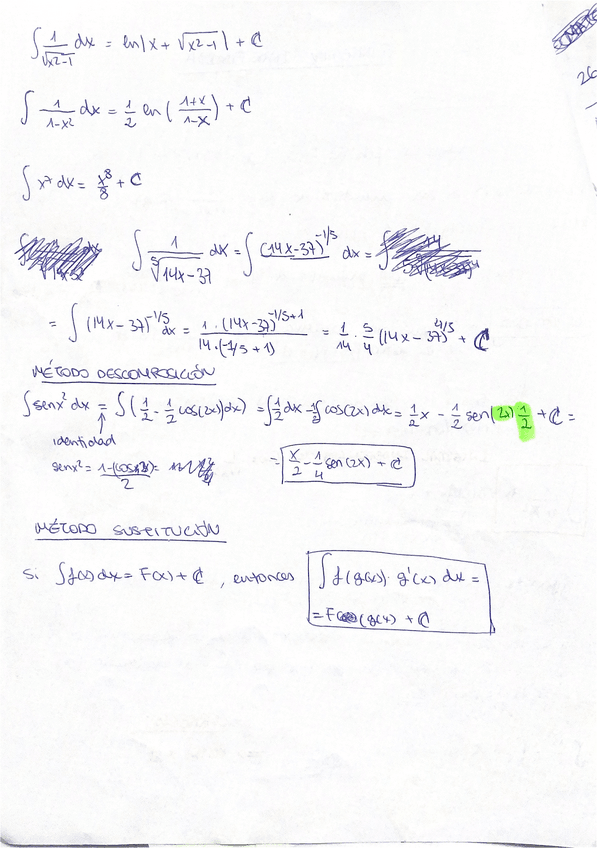 ∫ 1/√(x²-1) dx = ln|x + √(x²-1)| + C
∫ 1/(1-x²) dx = 1/2 ln((1+x)/(1-x)) + C
∫ x⁷ dx = x⁸/8 + C
∫ 1/⁵√(14x-37) dx = ∫ (14x-37)^(-1/5) dx =
= ∫ (14x-37)^(-1/5) dx = (1·(14x-37)^(-1/5+1))/(14·(-1/5+1)) = 1/14 · 5/4 (14x-37)^(4/5) + C
MÉTODO DESCOMPOSICIÓN
∫senx² dx = ∫(1/2 - 1/2 cos(2x))dx) = ∫1/2 dx - 1/2∫cos(2x) dx = 1/2 x - 1/2 sen(2x) 1/2 + C =
identidad
senx² = (1-(cos2x))/2 =
= x/2 - 1/4 sen(2x) + C
MÉTODO SUSTITUCIÓN
Si ∫f(x)dx = F(x) + C, entonces ∫f(g(x))·g'(x) dx =
= F(g(x) + C
26